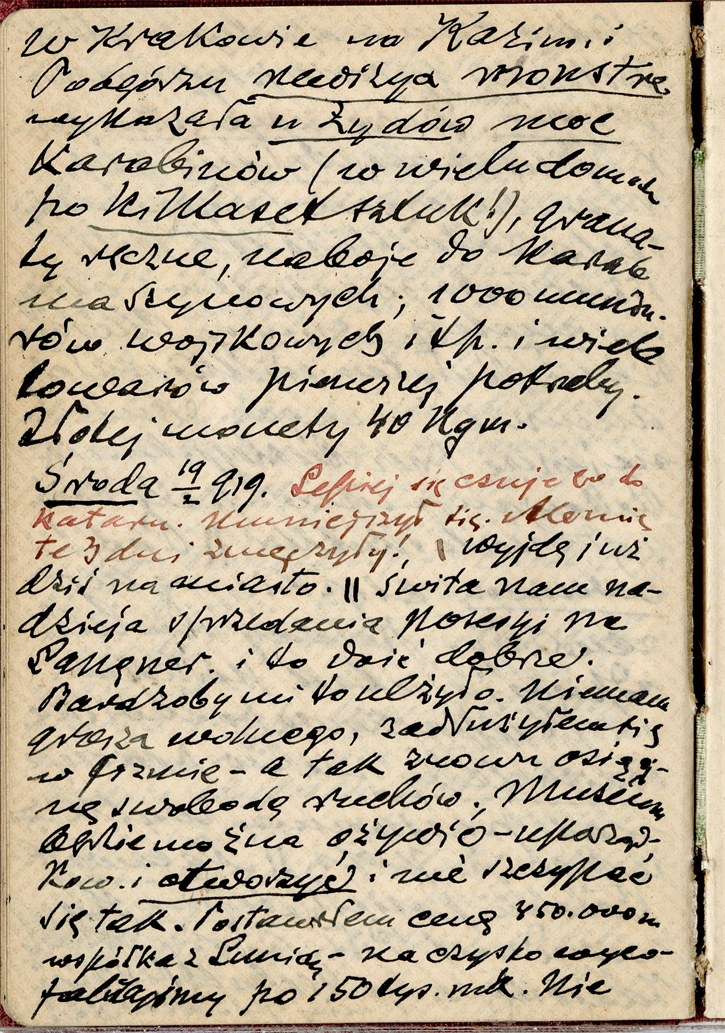 w Krakowie na Kazim. i
Podgórzu rewizya monstre
wykazała u Żydów moc
Karabinów (w wielu domach
po kilkaset sztuk!), grana-
ty ręczne, naboje do karab
maszynowych; 1000 mundu-
rów wojskowych i t.p. i wiele
towarów pierwszej potrzeby.
Złotej monety 40 Kgm.
Środa 19/2 919. Lepiej się czuję co do
kataru. Zmniejszył się. Ale mnie
te 3 dni zmęczyły! | wyjdę już
dziś na miasto. || Świta nam na-
dzieja sprzedania posesyi na
Langner. i to dość dobrze.
Bardzoby mi to ulżyło. Niemam
grosza wolnego, zadłużyłem się
w firmie - a tak znowu osiąg-
nę swobodę ruchów. Muzeum
będzie można ożywić - uporząd-
kow. i otworzyć i nie szczypać
się tak. Postawiłem cenę 450.000 m
wspólka z Lunią - na czysto
po 150 tys. mk. Nie